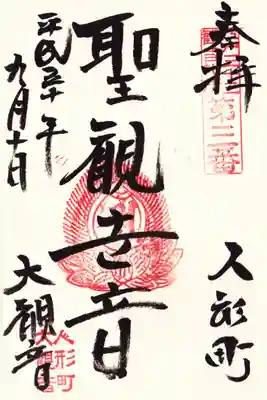 奉拝
第三番
人形町
聖観世音
平成
九月十日
大観音
人形町
大観音